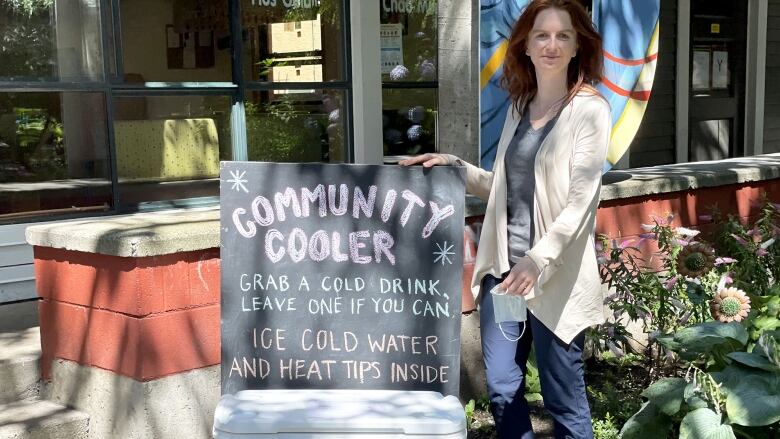 COMMUNITY
COOLER
GRAB A COLD DRINK,
LEAVE ONE IF YOU CAN.
ICE COLD WATER
AND HEAT TIPS INSIDE